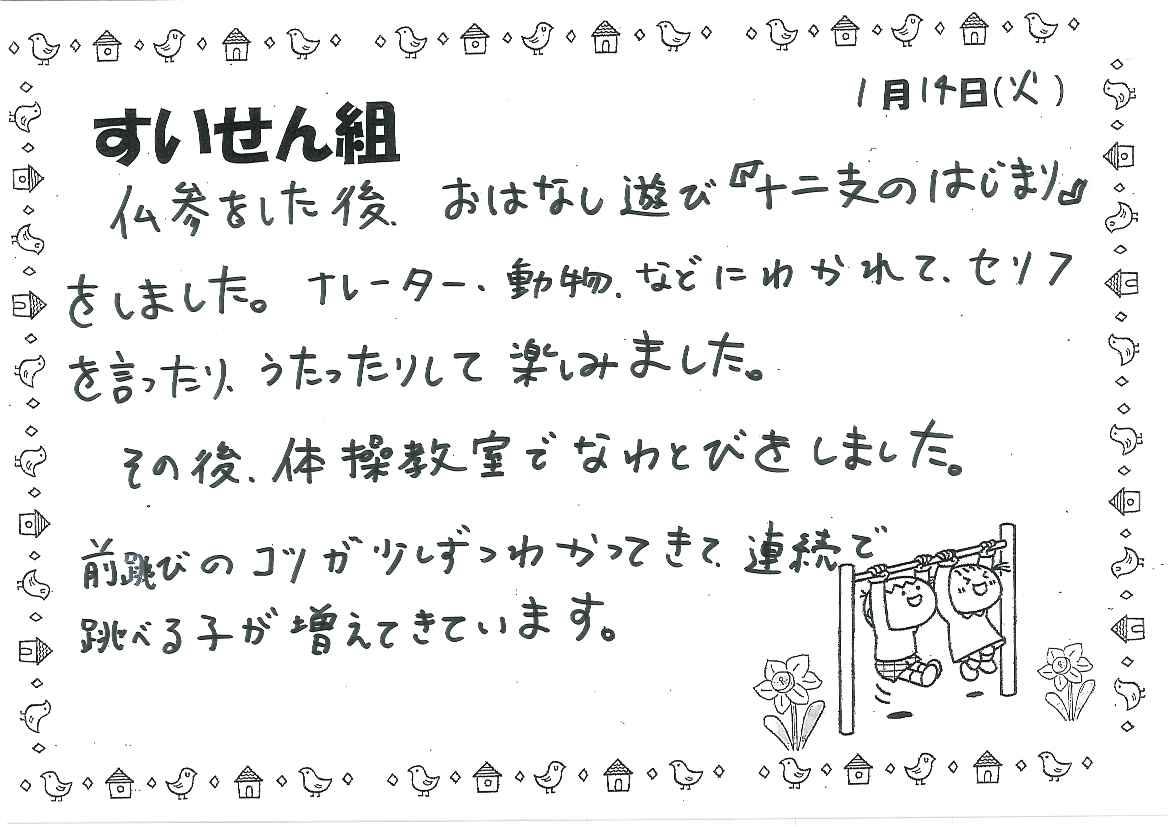 1月14日(火)
すいせん組
仏参をした後、おはなし遊び『十二支のはじまり』
をしました。ナレーター、動物、などにわかれて、セリフ
を言ったり、うたったりして楽しみました。
その後、体操教室でなわとびをしました。
前跳びのコツが少しずつわかってきて、連続で
跳べる子が増えてきています。